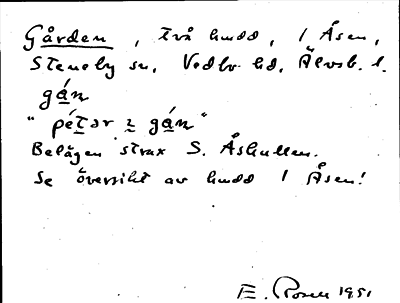 Gården, två hmdd, 1 Åsen,
Steneby sn, Vedbo hd, Älvsb. l.
gán
"pétər ɪ gán"
Belägen strax S. Åskullen.
Se översikt av hmdd 1 Åsen!
E. Rosen 1951